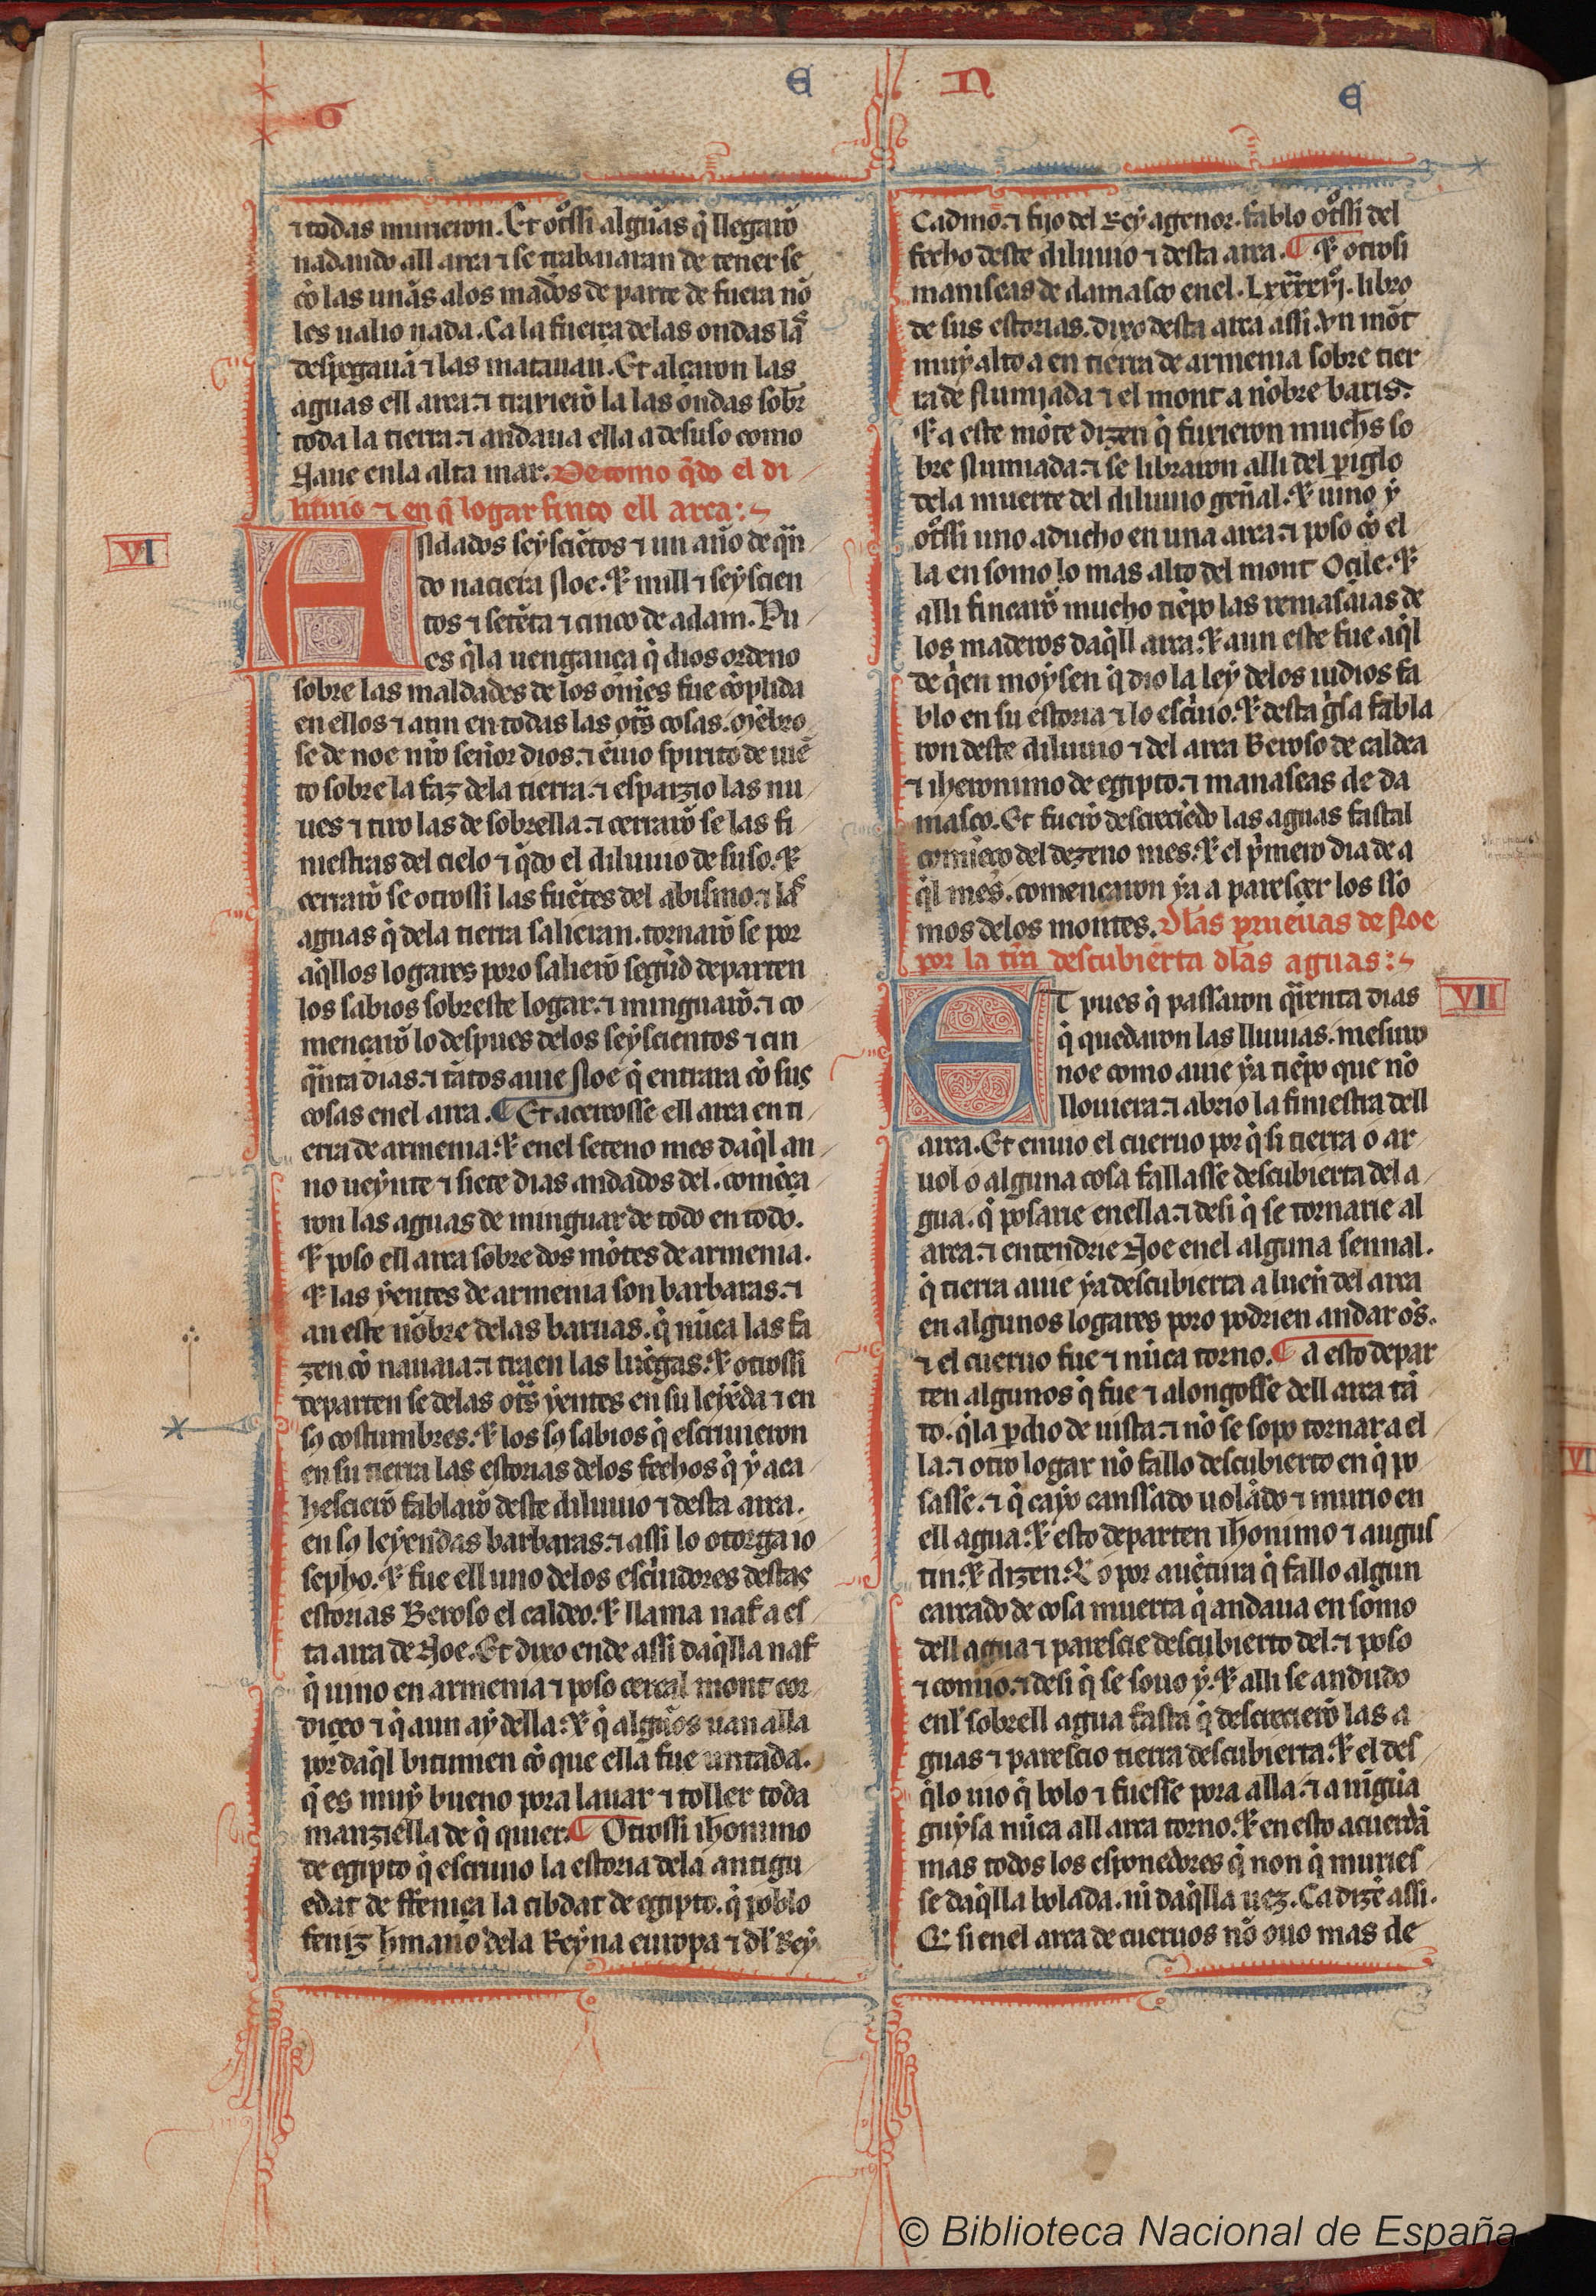 G E N E
⁊ todas murieron. Et otͦssi algũas q̃ llegarõ
nadando all arca ⁊ se trabaiaran de tener se
cõ las unas alos mad̃os de parte de fuera nõ
les ualio nada. Ca la fuerça delas ondas las
despegauã ⁊ las matauan. Et alçaron las
aguas ell arca. ⁊ trayierõ la las ondas sobr̃
toda la tierra. ⁊ andaua ella a desuso como
Naue enla alta mar. De como q̃do el di
luuio ⁊ en q̃ logar finco ell arca:~
VI
Andados seyscietos ⁊ un año de qñ
do naciera Noe. ⁊ mill ⁊ seyscien
tos ⁊ setẽta ⁊ cinco de adam. Pu
es q̃la uengança q̃ dios ordeno
sobre las maldades de los om̃es fue cõplida
en ellos ⁊ aun en todas las otr̃s cosas. mẽbro
se de noe nr̃o señor dios. ⁊ ẽuio spirito de uiẽ
to sobre la faz dela tierra. ⁊ esparzio las nu
ues ⁊ tiro las de sobrella. ⁊ cerrarõ se las fi
niestras del cielo ⁊ q̃do el diluuio de suso. ⁊
cerrarõ se otrossi las fuẽtes del abismo. ⁊ las
aguas q̃ dela tierra salieran. tornarõ se por
aq̃llos logares poro salierõ segũd departen
los sabios sobreste logar. ⁊ minguarõ. ⁊ co
mençarõ lo despues delos seyscientos ⁊ cin
q̃nta dias. ⁊ tãtos auie Noe q̃ entrara cõ sus
cosas enel arca. ¶ Et acerosse ell arca en ti
erra de armenia. ⁊ enel seteno mes daq̃l an
no ueynte ⁊ siete dias andados del. comẽça
ron las aguas de minguar de todo en todo.
⁊ poso ell arca sobre dos mõtes de armenia.
⁊ las yentes de armenia son barbaras. ⁊
an este nõbre delas baruas. q̃ nũca las fa
zen cõ nauaia. ⁊ traen las luẽgas. ⁊ otrossi
departen se delas otr̃s yentes en su leyẽda ⁊ en
sꝯ costumbres. ⁊ los sꝯ sabios q̃ escriuieron
en su tierra las estorias delos fechos q̃ y aca
hescierõ fablarõ deste diluuio ⁊ desta arca.
en sꝯ leyendas barbaras. ⁊ assi lo otorga io
sepho. ⁊ fue ell uno delos escriuidores destas
estorias Beroso el caldeo. ⁊ llama naf a es
ta arca de Noe. Et dixo ende assi daq̃lla naf
q̃ uino en armenia ⁊ poso cercal mont cor
diceo ⁊ q̃ aun ay della. ⁊ q̃ algũos uan alla
por daq̃l bitumen cõ que ella fue untada.
q̃ es muy bueno pora lauar ⁊ toller toda
manziella de q̃ quier. ¶ Otrossi iheronimo
de egipto q̃ escriuio la estoria dela antigu
edat de ffeniça la cibdat de egipto. q̃ poblo
feniz h̃mano dela Reyna europa ⁊ dl Rey
Cadmo. ⁊ fijo del Rey agenor. fablo otͦssi del
fecho deste diluuio ⁊ desta arca. ¶ ⁊ otrosi
maniseas de damasco enel. Lxxxxvj. libro
de sus estorias. dixo desta arca assi. Vn mõt
muy alto a en tierra de armenia sobre tier
ra de Numiada ⁊ el mont a nõbre baris.
⁊ a este mõte dizen q̃ fuxieron muchs so
bre Numiada. ⁊ se libraron alli del piglo
dela muerte del diluuio geñal. ⁊ uino y
otͦssi uno aducho en una arca. ⁊ poso cõ el
la en somo lo mas alto del mont Ocile. ⁊
alli fincarõ mucho tiẽpo las remasaias de
los maderos daq̃ll arca. ⁊ aun este fue aq̃l
de q̃en moysen q̃ dio la ley delos iudios fa
blo en su estoria ⁊ lo escriuo. ⁊ desta guisa fabla
ron deste diluuio ⁊ del arca Beroso de caldea
⁊ iheronimo de egipto. ⁊ manaseas de da
masco. Et fuerõ descreciẽdo las aguas fastal
comieço del dezeno mes. ⁊ el p̃mero dia de a
q̃l mes. començaron ya a parescer los so
mos delos montes. Dlas prueuas de Noe
por la trr̃a descubierta dlas aguas:~
VII
Et pues q̃ passaron q̃renta dias
q̃ quedaron las lluuias. mesuro
noe como auie ya tiẽpo que nõ
llouiera. ⁊ abrio la finiestra dell
arca. Et enuio el cueruo por q̃ si tierra o ar
uol o alguna cosa fallasse descubierta del a
gua. q̃ posarie enella. ⁊ desi q̃ se tornarie al
arca. ⁊ entendrie Noe enel alguna sennal.
q̃ tierra auie ya descubierta a lueñ del arca
en algunos logares poro podrien andar os.
⁊ el cueruo fue ⁊ nũca torno. ¶ A esto depar
ten algunos q̃ fue ⁊ alongosse dell arca tã
to. q̃la pdio de uista. ⁊ nõ se sopo tornar a el
la. ⁊ otro logar nõ fallo descubierto en q̃ po
sasse. ⁊ q̃ cayo canssado uolãdo ⁊ murio en
ell agua. ⁊ esto departen ihronimo ⁊ augus
tin. ⁊ dizen. O por auẽtura q̃ fallo algun
carcado de cosa muerta q̃ andaua en somo
dell agua ⁊ parescie descubierto del. ⁊ poso
⁊ comio. ⁊ desi q̃ se souo y. ⁊ alli se andudo
enl sobrell agua fasta q̃ descrecierõ las a
guas ⁊ parescio tierra descubierta. ⁊ el des
q̃lo uio q̃ bolo ⁊ fuesse pora alla. ⁊ a nigũa
guysa nũca all arca torno. ⁊ en esto acuerdã
mas todos los esponedores q̃ non q̃ muries
se daq̃lla bolada. ni daq̃lla uez. Ca dizẽ assi.
Et si enel arca de cueruos nõ ouo mas de
© Biblioteca Nacional de España